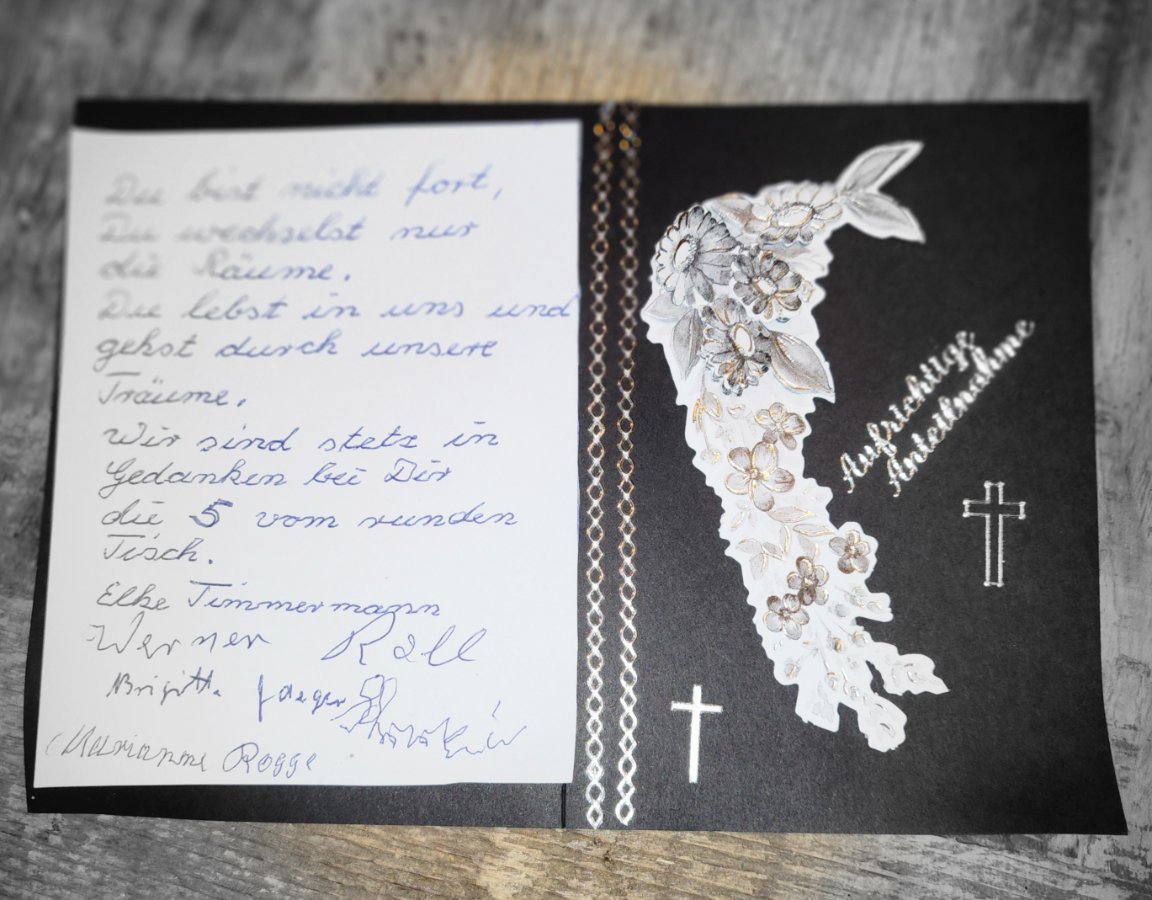 Du bist nicht fort,
Du wechselst nur
die Räume.
Du lebst in uns und
gehst durch unsere
Träume.
Wir sind stets in
Gedanken bei Dir
die 5 vom runden
Tisch.
Elke Timmermann
Werner Rall
Brigitte Jaeger
Marianne Rogge
Aufrichtige
Anteilnahme